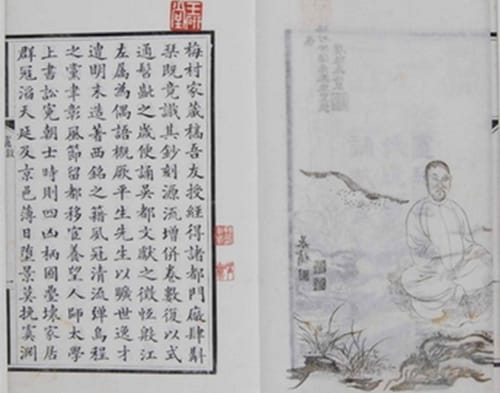 梅村家藏稿吾友授經得諸都門廠肆斠
栞既竟識其鈔刻源流增併卷數復以式
通髫齔之歲便誦吳都文獻之徵恆殷江
左屬為偶語概厥平生先生以曠世逸才
遭明末造著西銘之籍夙冠清流彈烏程
之黨聿彰風節留都移宦養望人師太學
上書訟寃朝士時則四凶柄國臺壞家居
群寇滔天延及京邑薄日墮景莫挽虞淵